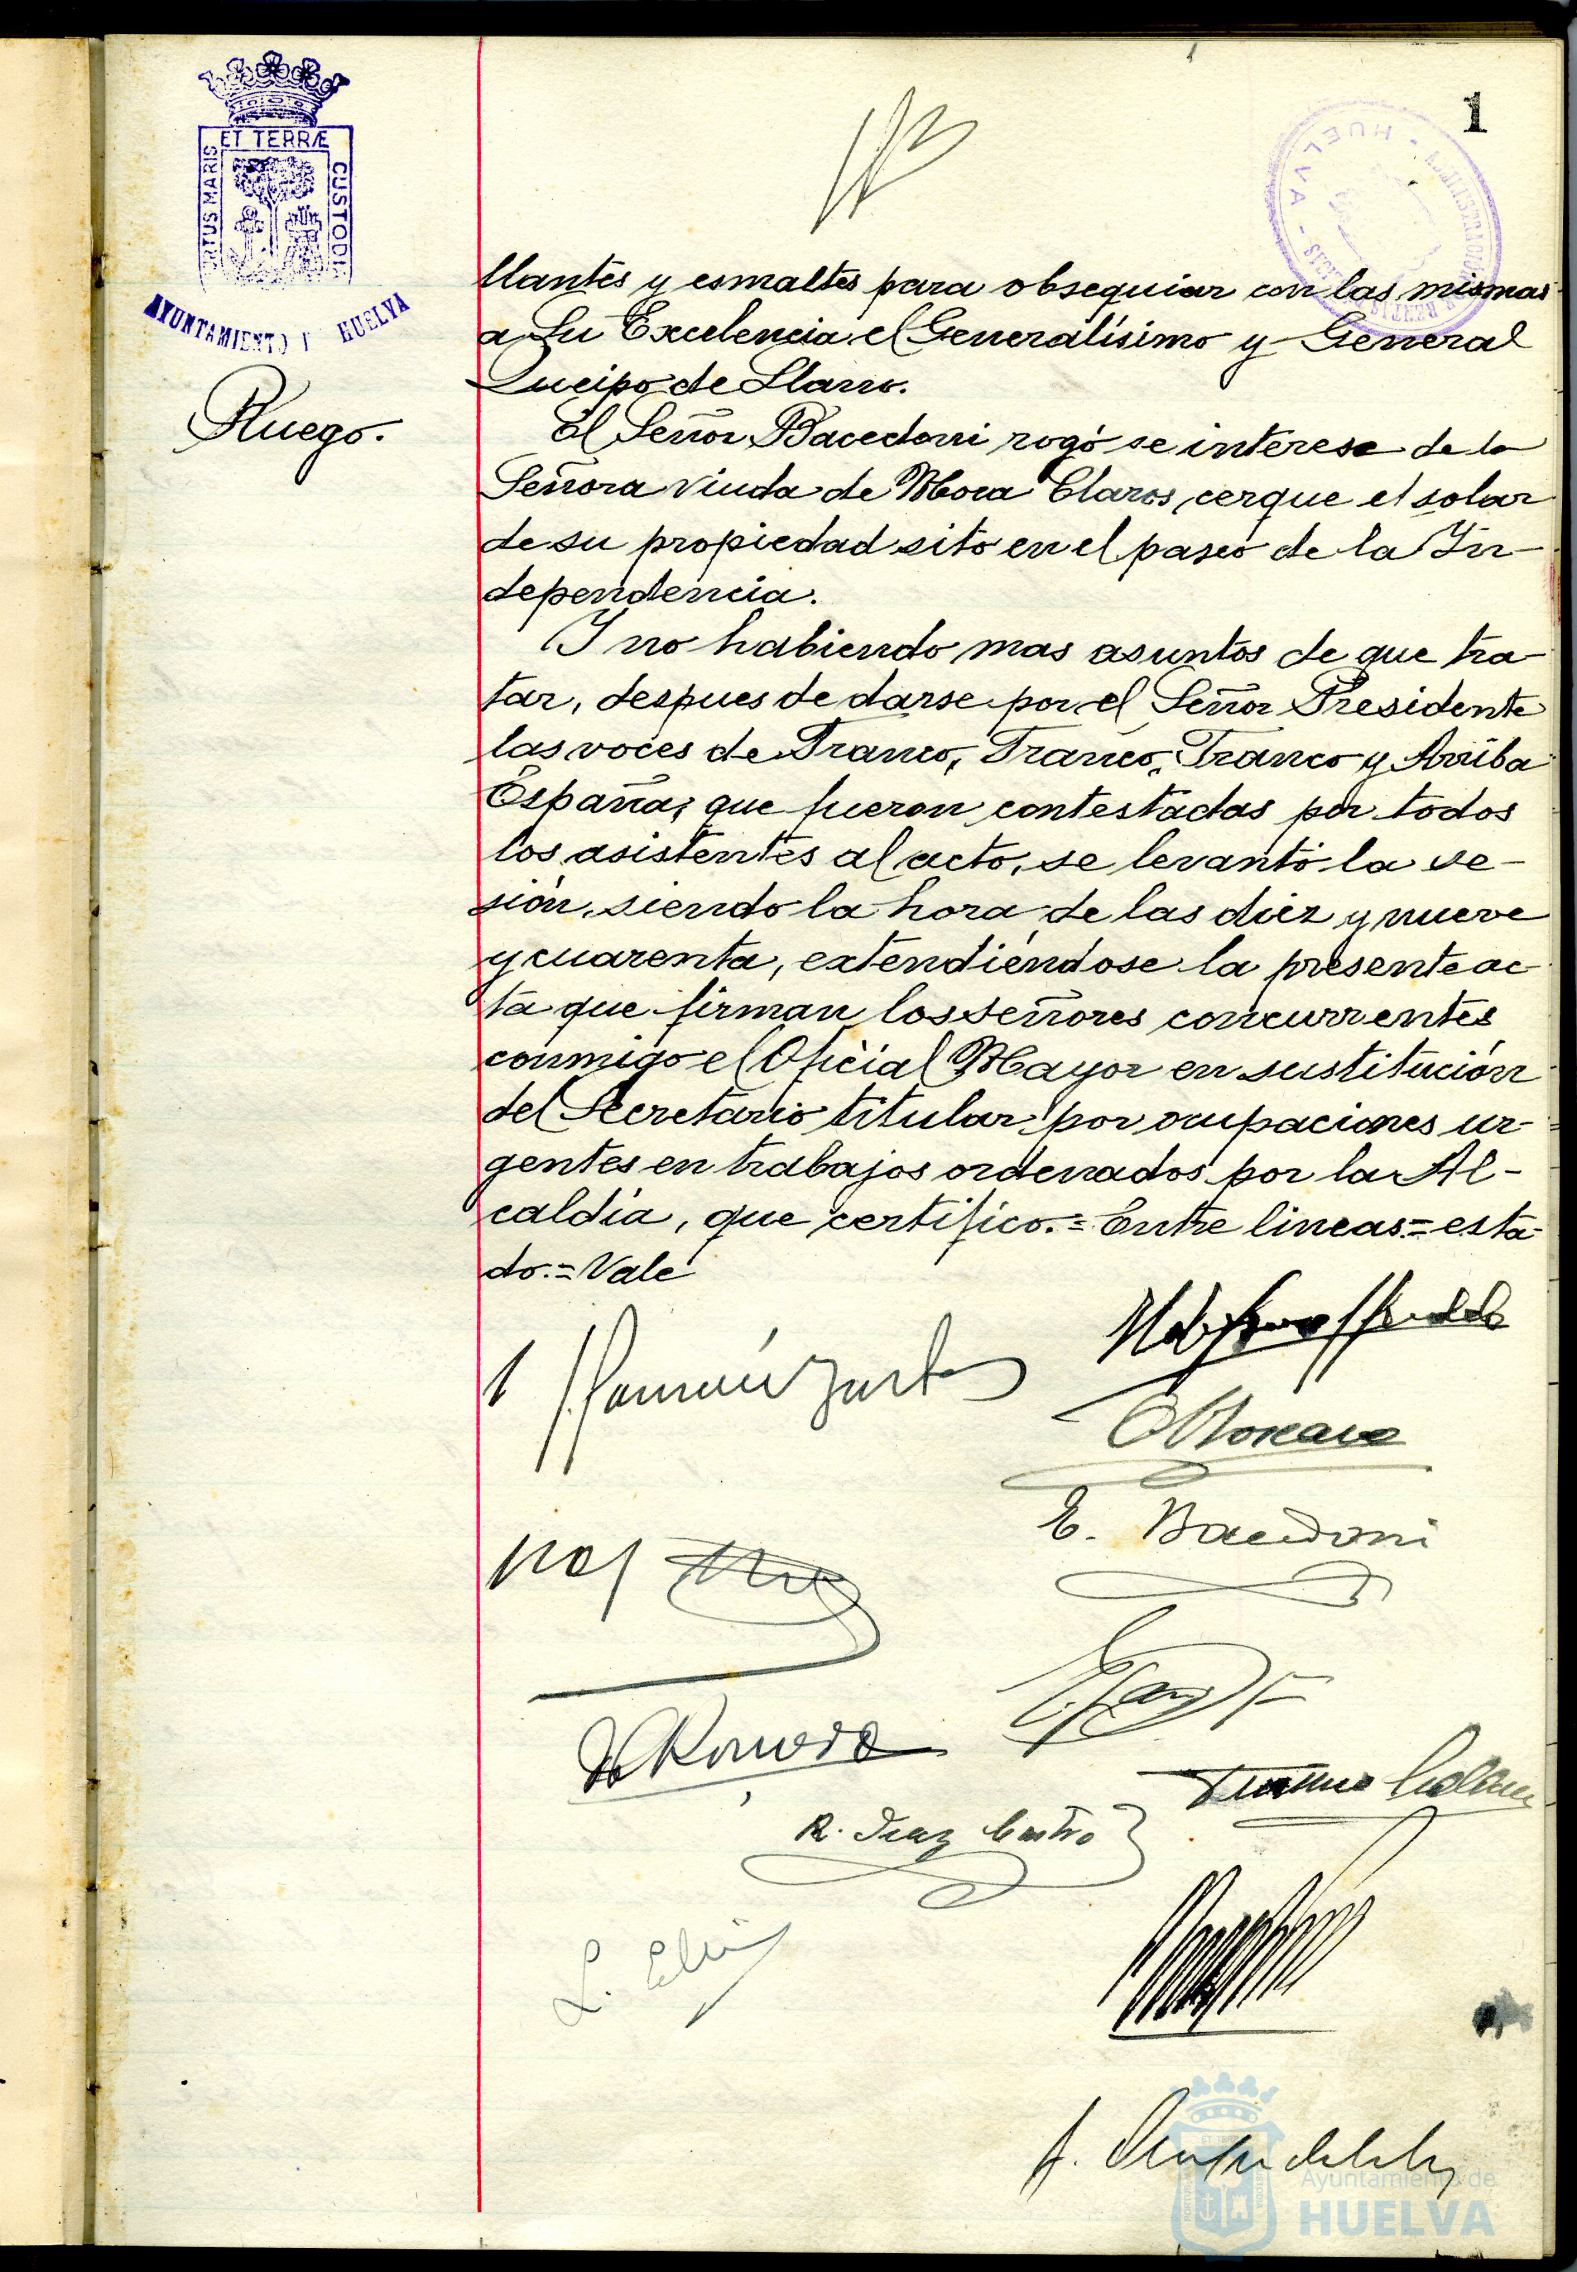 1
ET TERRÆ
CUSTODIA
AYUNTAMIENTO HUELVA
HUELVA
Ruego.
llantes y esmaltes para obsequiar con las mismas
a Su Excelencia el Generalísimo y General
Queipo de Llano.
El Señor Bacedoni rogó se interese de la
Señora viuda de Mora Claros, cerque el solar
de su propiedad sito en el paseo de la In-
dependencia.
Y no habiendo mas asuntos de que tra-
tar, despues de darse por el Señor Presidente
las voces de Franco, Franco, Franco y Arriba
España; que fueron contestadas por todos
los asistentes al acto, se levantó la se-
sión, siendo la hora de las diez y nueve
y cuarenta, extendiéndose la presente ac-
ta que firman los señores concurrentes
conmigo el Oficial Mayor en sustitución
del Secretario titular por ocupaciones ur-
gentes en trabajos ordenados por la Al-
caldía, que certifico.= Entre lineas.= esta-
do.= Vale
E. Bacedoni
Romero
R. Diaz Castro
Ayuntamiento de
HUELVA